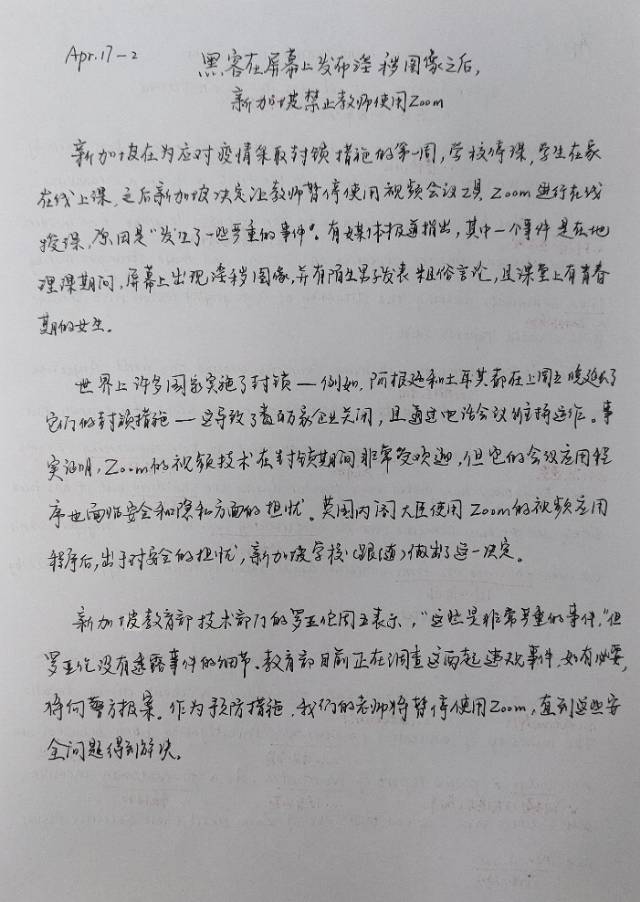 Apr.17-2
黑客在屏幕上发布淫秽图像之后,
新加坡禁止教师使用Zoom
新加坡在为应对疫情采取封锁措施的第一周,学校停课,学生在家
在线上课,之后新加坡决定让教师暂停使用视频会议工具Zoom进行在线
授课,原因是“发生了一些严重的事件”。有媒体报道指出,其中一个事件是在地
理课期间,屏幕上出现淫秽图像,并有陌生男子发表粗俗言论,且课堂上有青春
期的女生。
世界上许多国家实施了封锁—例如,阿根廷和土耳其都在上周五晚延长了
它们的封锁措施—这导致了数百万家企业关闭,且通过电话会议维持运作。事
实证明,Zoom的视频技术在封锁期间非常受欢迎,但它的会议应用程
序也面临安全和隐私方面的担忧。英国内阁大臣使用Zoom的视频应用
程序后,出于对安全的担忧,新加坡学校(跟随)做出了这一决定。
新加坡教育部技术部门的罗五伦周五表示,“这些是非常严重的事件,”但
罗五伦没有透露事件的细节。教育部目前正在调查这两起违规事件,如有必要,
将向警方报案。作为预防措施,我们的老师将暂停使用Zoom,直到这些安
全问题得到解决。